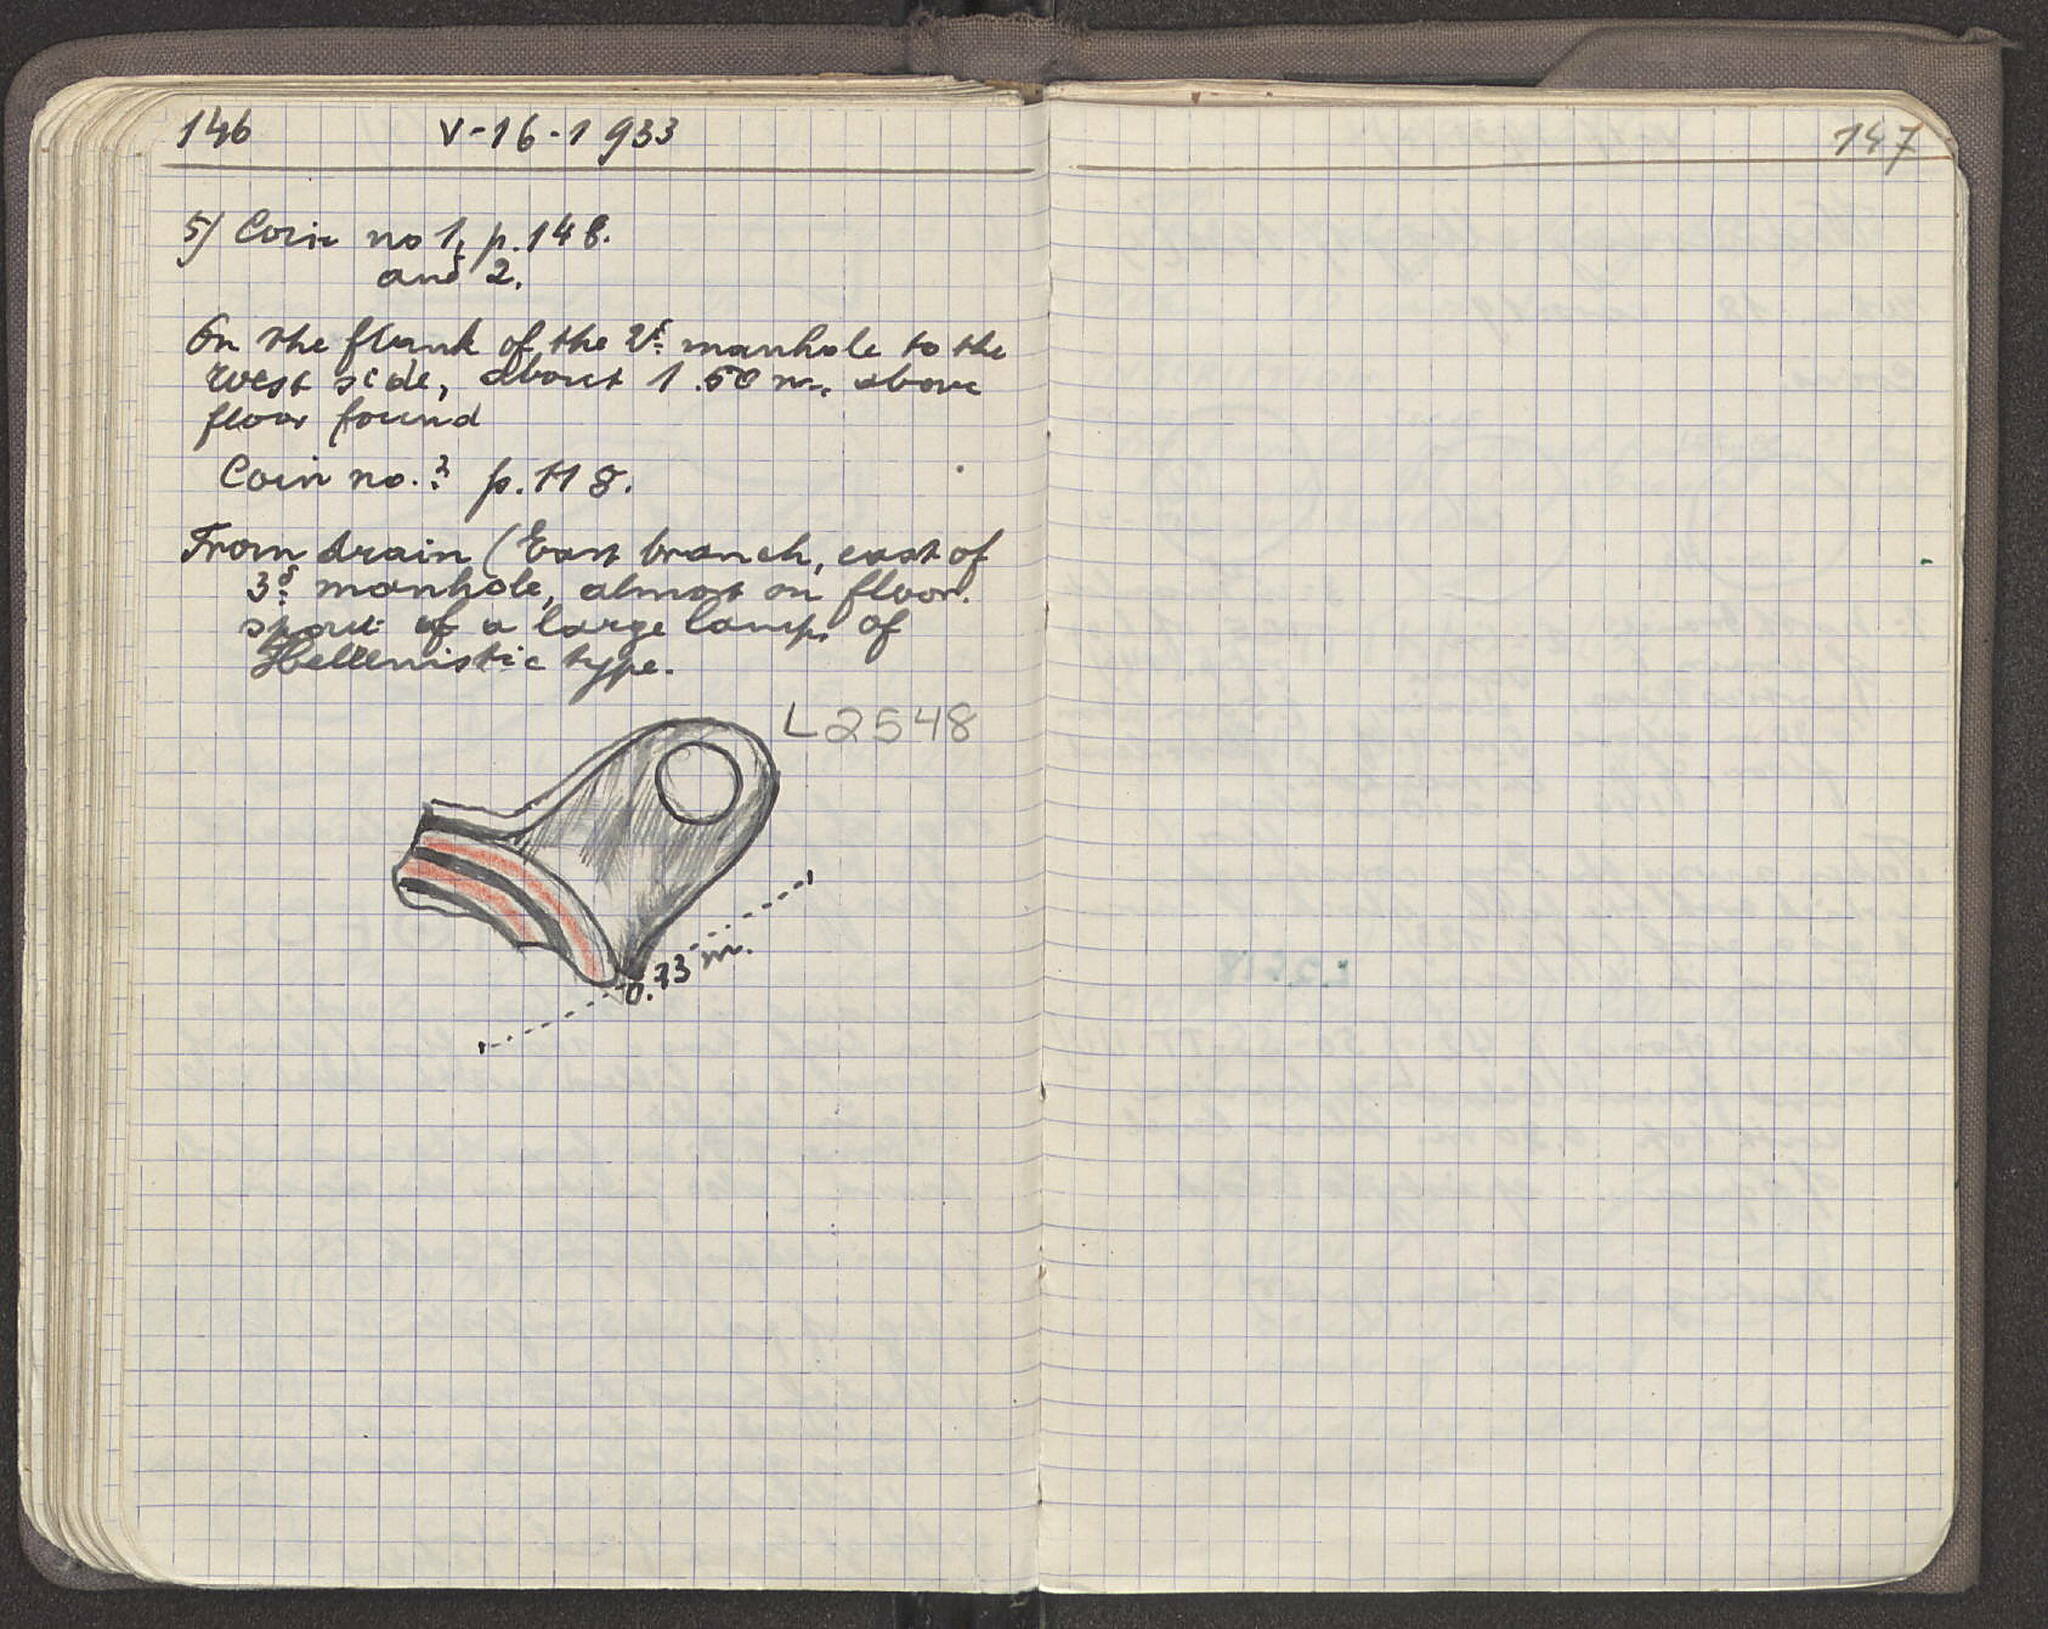 146 V-16-1933
5) Coin no 1, p. 148.
and 2.
On the flank of the 2d manhole to the
west side, about 1.50 m. above
floor found
Coin no. 3 p. 118.
From drain (East branch, east of
3d manhole, almost on floor.
spout of a large lamp, of
Hellenistic type.
L 2548
0.73 m.
147